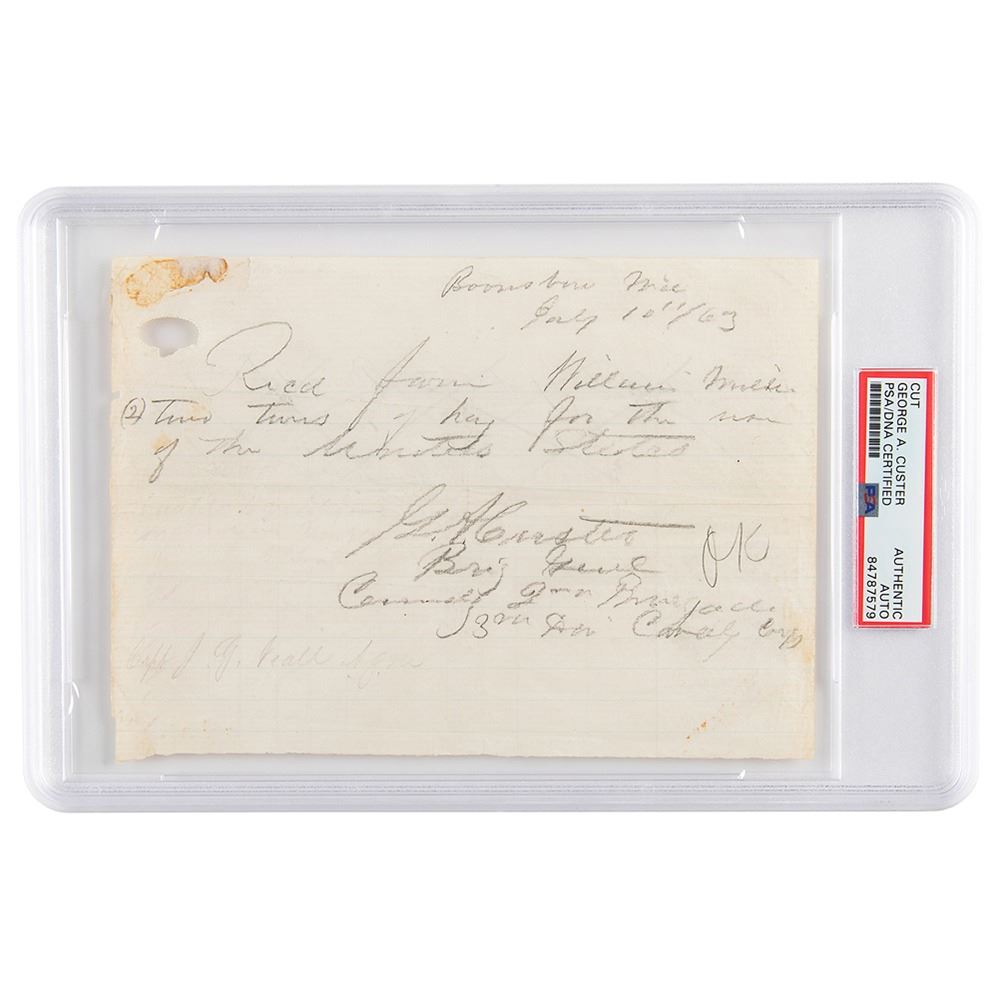 Boonsboro Md
July 10"/63
Recd from William
(2) two tons of hay for the use
of the United States
G. A. Custer
Brig Genl
Comdg 2nd Brigade
3rd Div Cavaly Corps
OK
Capt J. G.
CUT
GEORGE A. CUSTER
PSA/DNA CERTIFIED
PSA
AUTHENTIC
AUTO
84787579